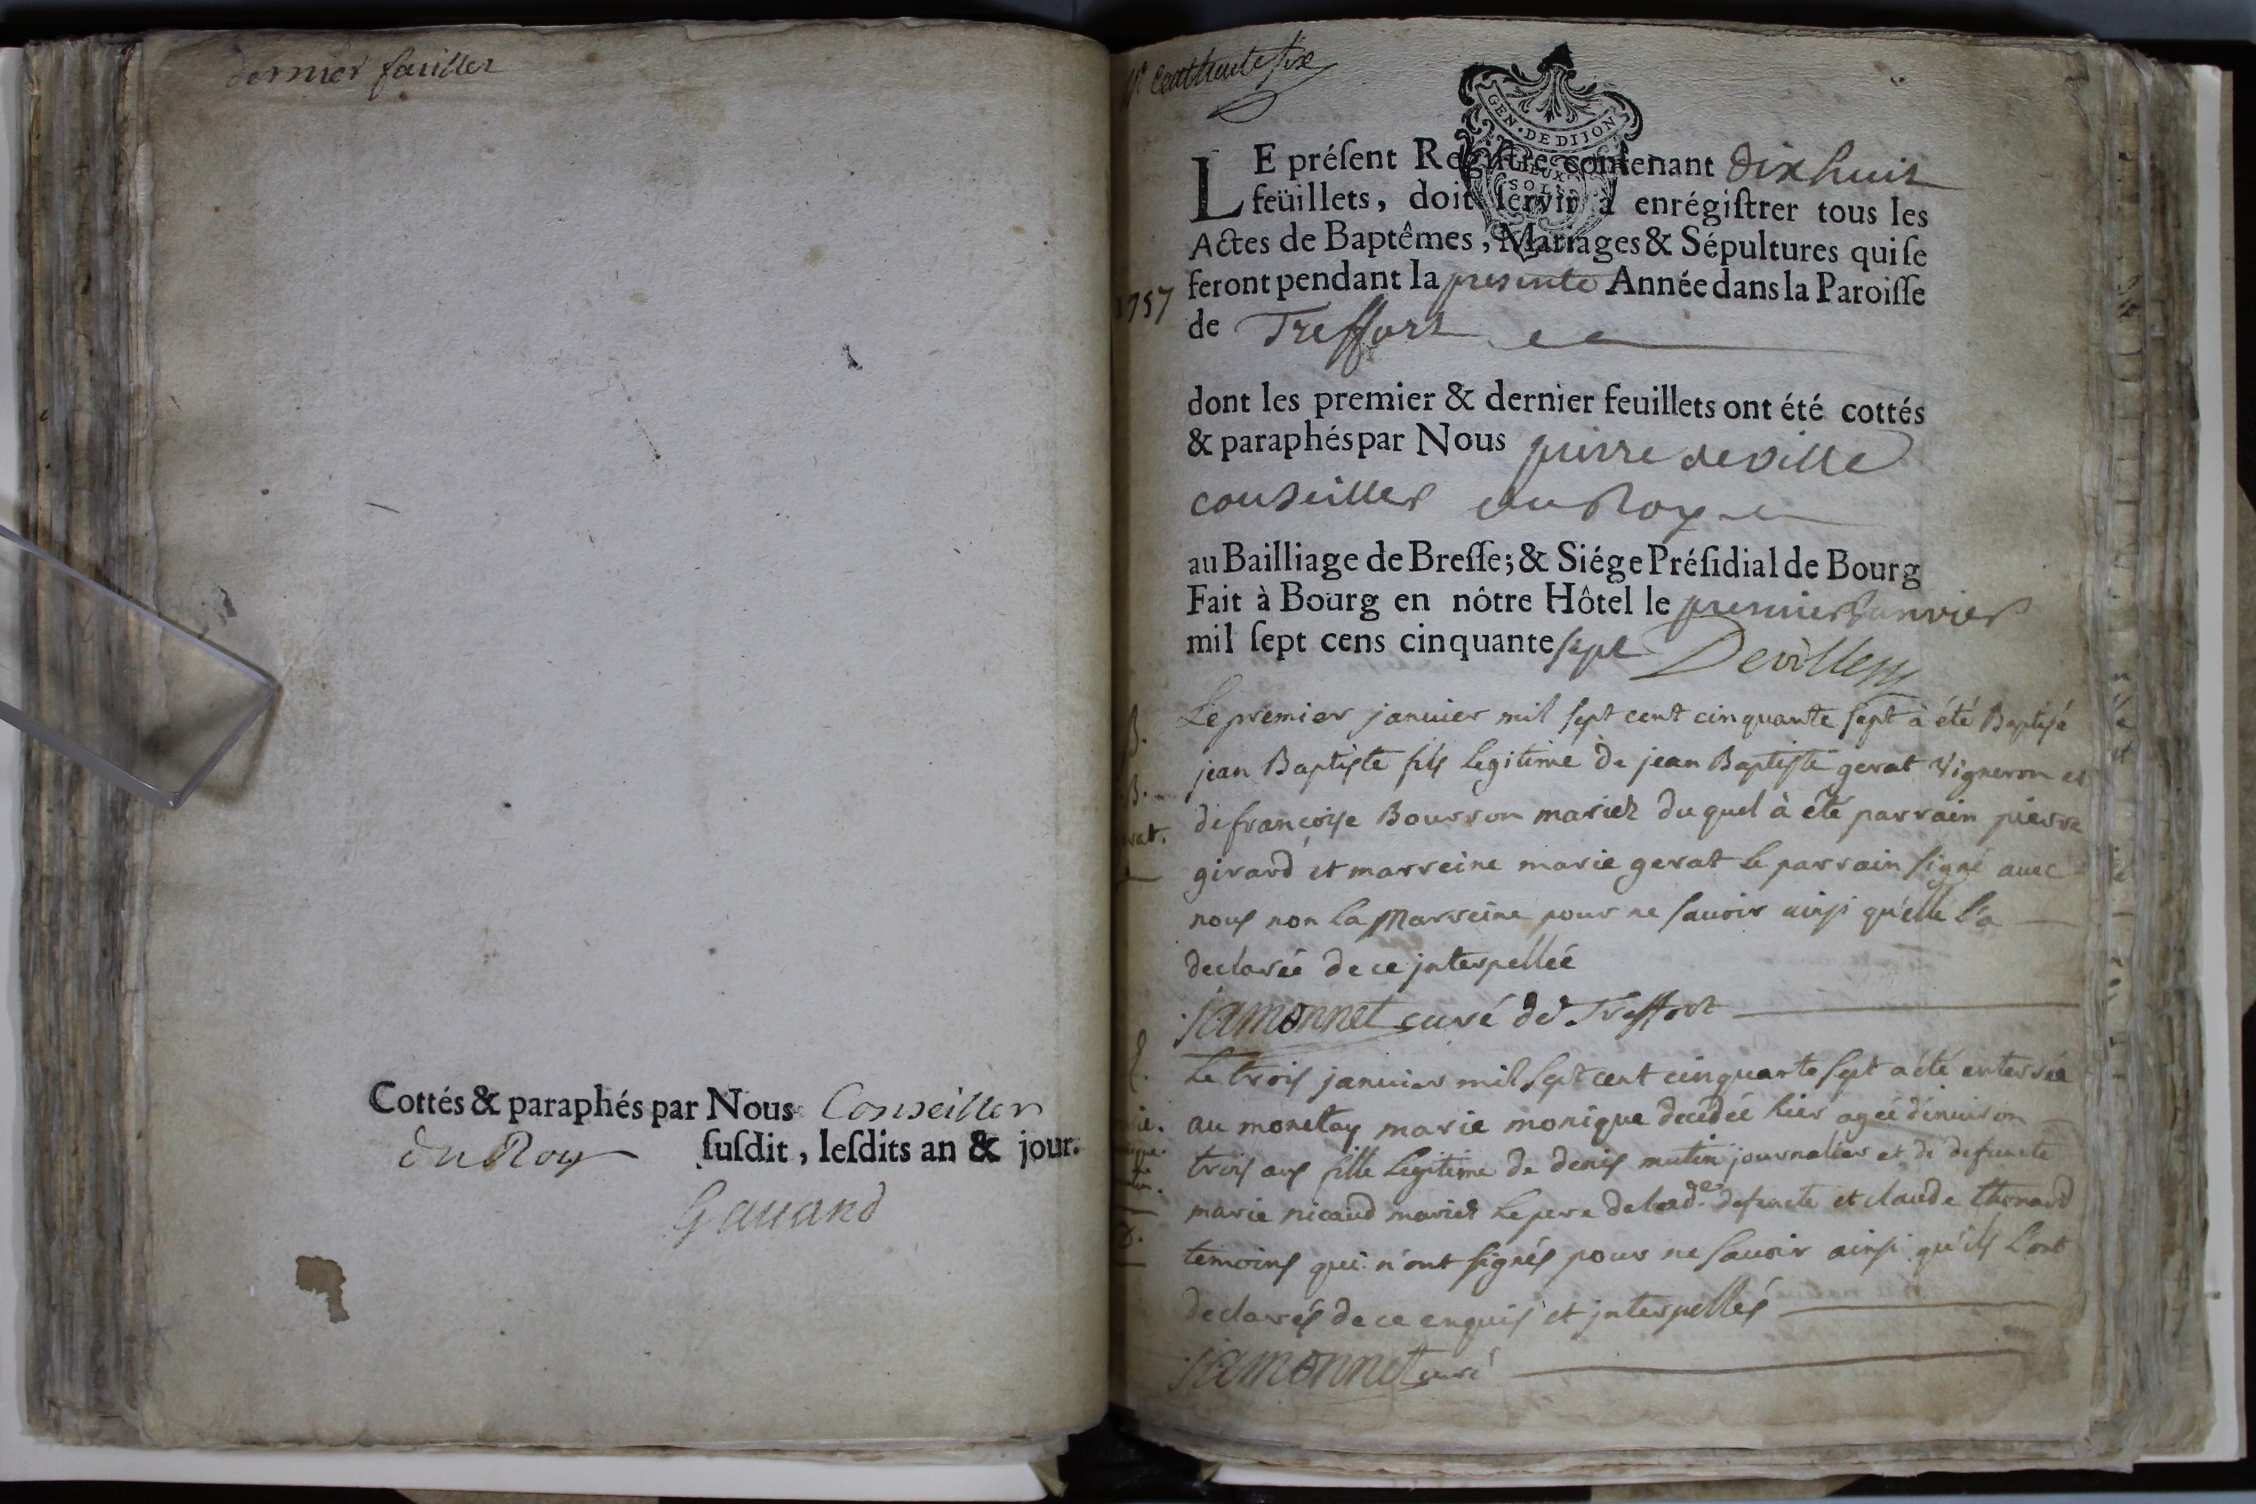 dernier feuillet
Cottés & paraphés par Nous Conseiller
du Roy susdit, lesdits an & jour.
Gauand
Cent trente six
GEN · DE DIJON
DEUX
SOLS
LE présent Registre contenant dix huit
feüillets, doit servir à enrégistrer tous les
Actes de Baptêmes, Mariages & Sépultures qui se
feront pendant la presente Année dans la Paroisse
1757
de Treffort
dont les premier & dernier feuillets ont été cottés
& paraphés par Nous pierre deville
conseiller du Roy
au Bailliage de Bresse; & Siége Présidial de Bourg
Fait à Bourg en nôtre Hôtel le premier Janvier
mil sept cens cinquante sept Deville
B.
Le premier janvier mil sept cent cinquante sept à été Baptisé
jean Baptiste fils legitime de jean Baptiste gerat Vigneron et
B.
de françoise Bourron mariez du quel à été parrain pierre
rat.
girard et marreine marie gerat le parrain signé avec
nous non la Marreine pour ne savoir ainsi qu'elle l'a
declarée de ce jnterpellée
jamonnet curé de Treffort
Le trois janvier mil sept cent cinquante sept a été enterrée
au monetay marie monique decédée hier agée d'environ
trois ans fille legitime de denis mutin journalier et de defuncte
marie nicaud mariez le pere de lad.e defuncte et claude thenard
temoins qui n'ont signés pour ne savoir ainsi qu'ils l'ont
declarés de ce enquis et jnterpellés
jamonnet curé